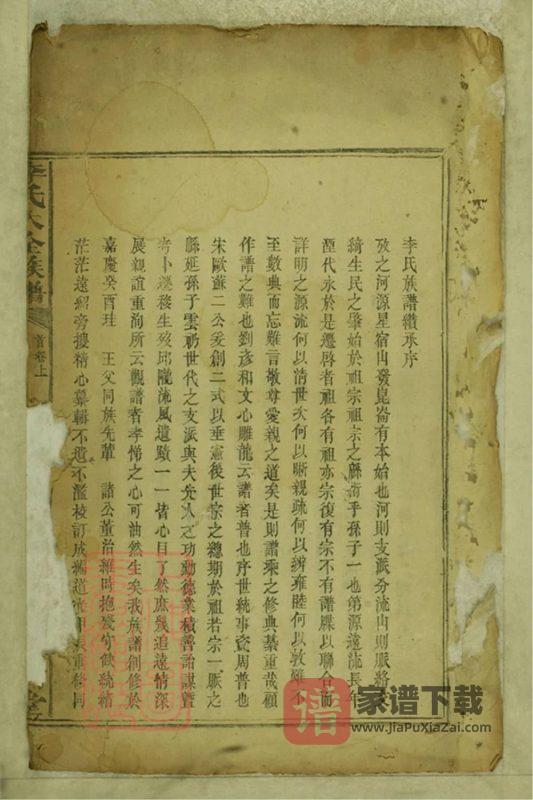 李氏族譜纘承序
攷之河源星宿山發崑崙有本始也河則支派分流山則脈
綺生民之肇始於祖宗祖宗之緜衍乎孫子一也第源遠流長年
湮代永於是遷啓者祖各有祖亦宗復有宗不有譜牒以聯合而
詳明之源流何以清世次何以晰親疏何以辨雍睦何以敦雖不
至數典而忘難言敬尊愛親之道矣是則譜乘之修典綦重哉顧
作譜之難也劉彥和文心雕龍云譜者普也序世統事資周普也
宋歐蘇二公爰創二式以垂憲後世宗之總期於祖若宗一脈之
緜延孫子雲礽世代之支派與夫先人之功勳德業積善詒謀曁
考卜遷移生歿邱隴流風遺蹟一一皆心目了然庶幾追遠情深
展親誼重洵所云觀譜者孝悌之心可油然生矣我族譜創修於
嘉慶癸酉 王父同族先輩 諸公董治 時抱 守 統緒
茫茫遠紹旁搜精心纂輯不遺不濫校訂成 道光 重修同
李氏大全族譜
首卷上
家谱下载
www.JiaPuXiaZai.com
谱